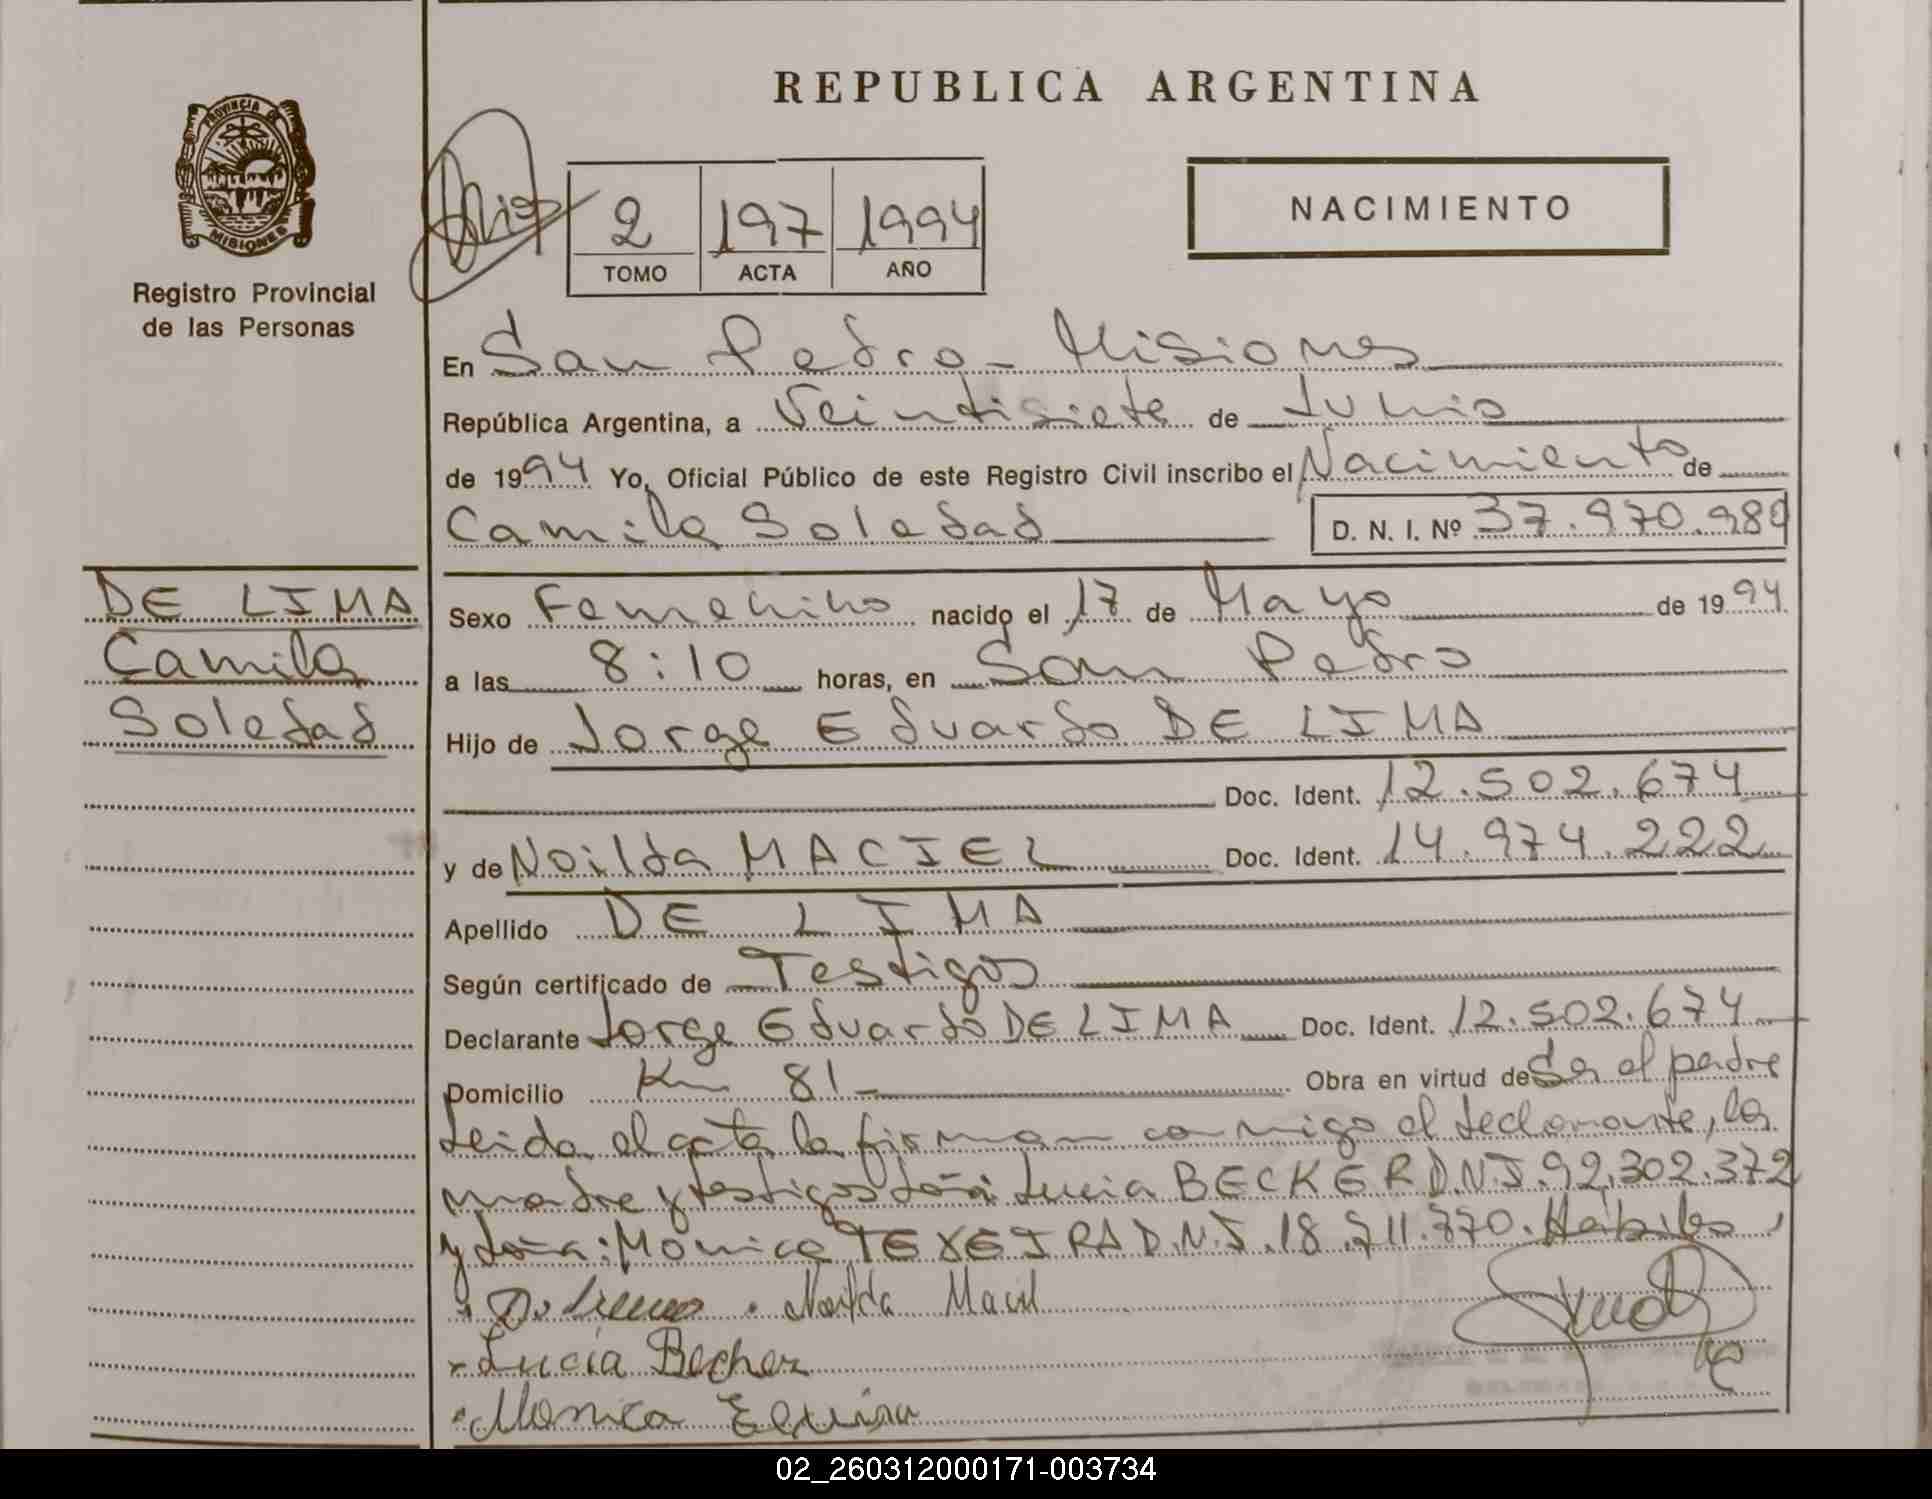 REPUBLICA ARGENTINA
PROVINCIA DE
MISIONES
Registro Provincial
de las Personas
2 197 1994
TOMO ACTA AÑO
NACIMIENTO
En San Pedro - Misiones
República Argentina, a Veintisiete de Junio
de 1994 Yo, Oficial Público de este Registro Civil inscribo el Nacimiento de
Camila Soledad D. N. I. Nº 37.970.980
DE LIMA
Camila
Soledad
Sexo Femenino nacido el 17 de Mayo de 1994
a las 8:10 horas, en San Pedro
Hijo de Jorge Eduardo DE LIMA
Doc. Ident. 12.502.674
y de Noilda MACIEL Doc. Ident. 14.974.222
Apellido DE LIMA
Según certificado de Testigos
Declarante Jorge Eduardo DE LIMA Doc. Ident. 12.502.674
Domicilio Km 81 - Obra en virtud de Ser el padre
Leida el acta la firman conmigo el declarante, la
madre y testigos doña: Lucia BECKER D.N.I. 92.302.372
y doña: Monica TEXEIRA D.N.I. 18.711.770. Habiles
Noilda Maciel
Lucia Becher
Monica
02_260312000171-003734